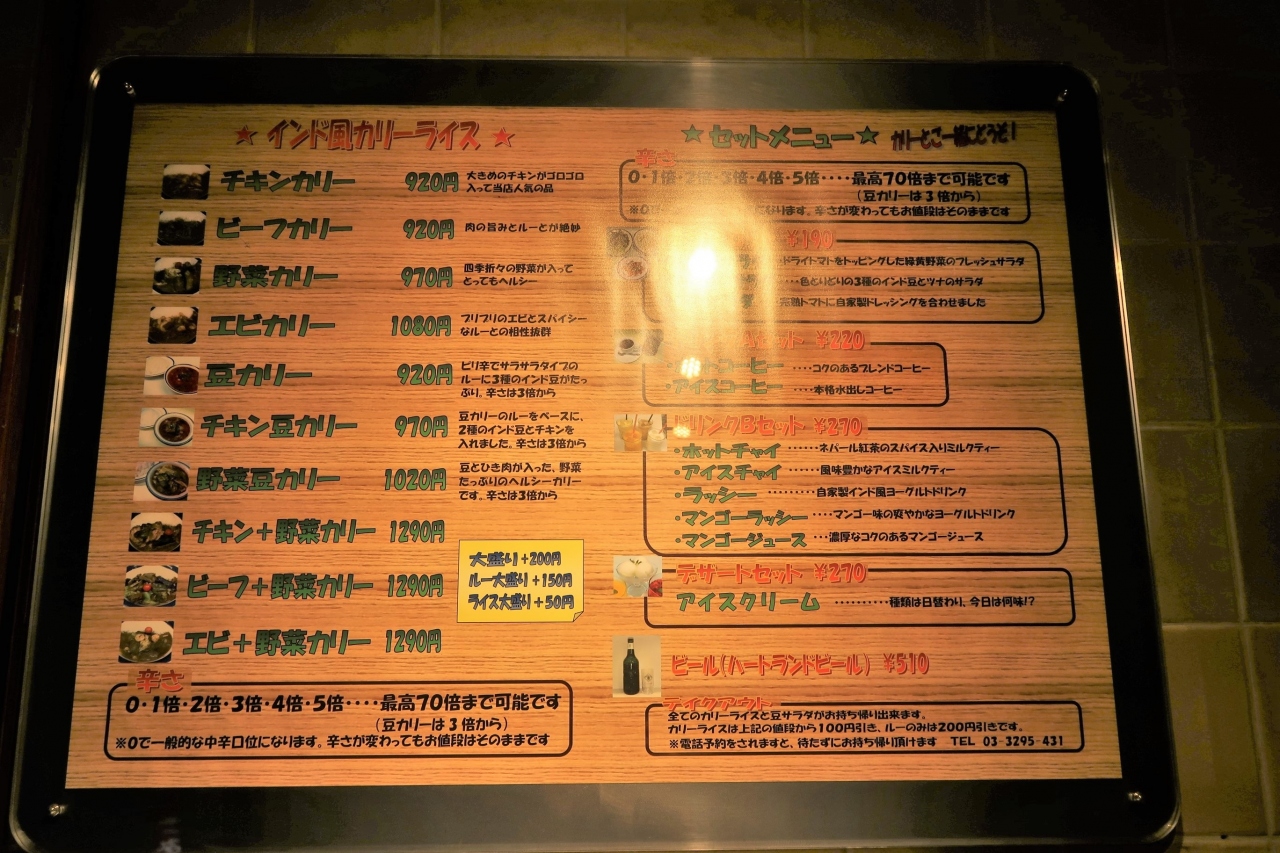 ★ インド風カリーライス ★
チキンカリー 920円 大きめのチキンがゴロゴロ
入って当店人気の品
ビーフカリー 920円 肉の旨みとルーとが絶妙
野菜カリー 970円 四季折々の野菜が入って
とってもヘルシー
エビカリー 1080円 プリプリのエビとスパイシー
なルーとの相性抜群
豆カリー 920円 ピリ辛でサラサラタイプの
ルーに3種のインド豆がたっ
ぷり。辛さは3倍から
チキン豆カリー 970円 豆カリーのルーをベースに、
2種のインド豆とチキンを
入れました。辛さは3倍から
野菜豆カリー 1020円 豆とひき肉が入った、野菜
たっぷりのヘルシーカリー
です。辛さは3倍から
チキン+野菜カリー 1290円
ビーフ+野菜カリー 1290円
エビ+野菜カリー 1290円
大盛り+200円
ルー大盛り+150円
ライス大盛り+50円
辛さ
0・1倍・2倍・3倍・4倍・5倍‥‥最高70倍まで可能です
(豆カリーは3倍から)
※0で一般的な中辛口位になります。辛さが変わってもお値段はそのままです
★セットメニュー★ カリーとご一緒にどうぞ!
辛さ
0・1倍・2倍・3倍・4倍・5倍‥‥最高70倍まで可能です
(豆カリーは3倍から)
になります。辛さが変わってもお値段はそのままです
¥190
ドライトマトをトッピングした緑黄野菜のフレッシュサラダ
色とりどりの3種のインド豆とツナのサラダ
完熟トマトに自家製ドレッシングを合わせました
Aセット ¥220
コーヒー ‥‥コクのあるブレンドコーヒー
・アイスコーヒー ‥‥本格水出しコーヒー
ドリンクBセット ¥270
・ホットチャイ ‥‥‥ネパール紅茶のスパイス入りミルクティー
・アイスチャイ ‥‥‥風味豊かなアイスミルクティー
・ラッシー ‥‥‥‥‥自家製インド風ヨーグルトドリンク
・マンゴーラッシー ‥‥マンゴー味の爽やかなヨーグルトドリンク
・マンゴージュース ‥‥濃厚なコクのあるマンゴージュース
デザートセット ¥270
アイスクリーム ‥‥‥‥‥種類は日替わり、今日は何味!?
ビール(ハートランドビール) ¥510
テイクアウト
全てのカリーライスと豆サラダがお持ち帰り出来ます。
カリーライスは上記の値段から100円引き、ルーのみは200円引きです。
※電話予約をされますと、待たずにお持ち帰り頂けます TEL 03-3295-431